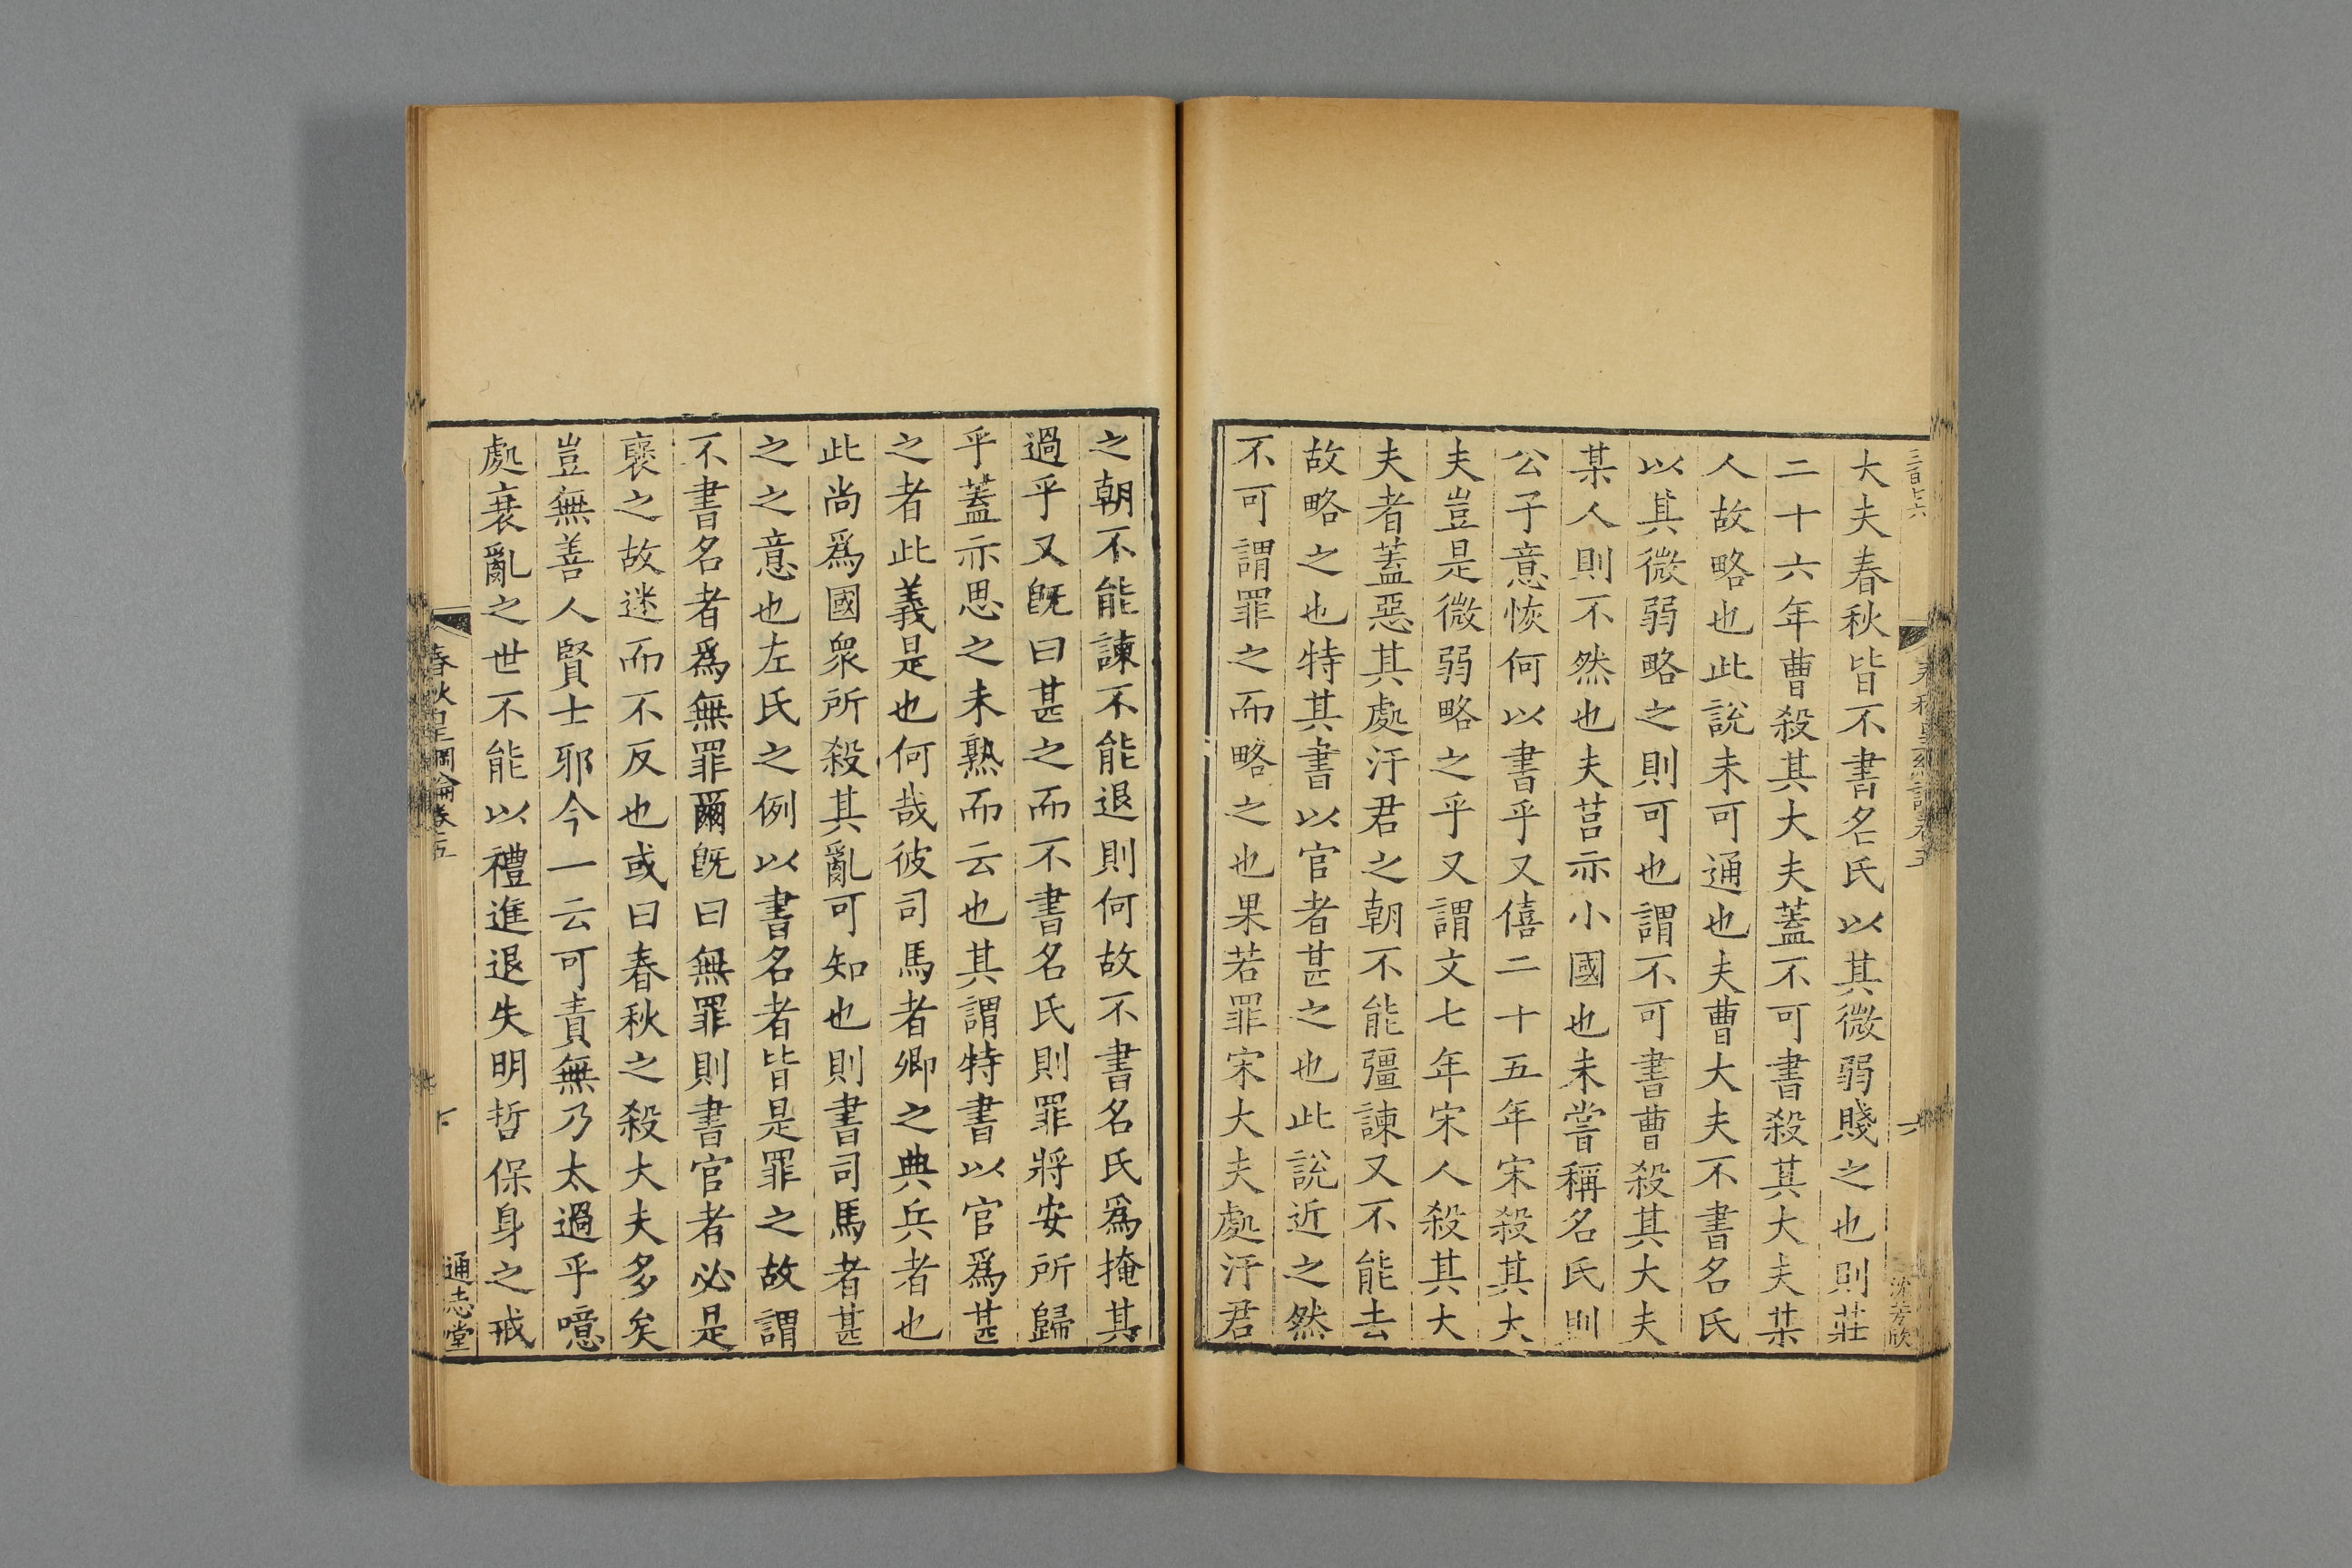 大夫春秋皆不書名氏以其微弱賤之也則莊
二十六年曹殺其大夫蓋不可書殺其大夫某
人故略也此說未可通也夫曹大夫不書名氏
以其微弱略之則可也謂不可書曹殺其大夫
某人則不然也夫莒亦小國也未嘗稱名氏則
公子意恢何以書乎又僖二十五年宋殺其大
夫豈是微弱略之乎又謂文七年宋人殺其大
夫者蓋惡其處汙君之朝不能彊諫又不能去
故略之也特其書以官者甚之也此說近之然
不可謂罪之而略之也果若罪宋大夫處汙君
之朝不能諫不能退則何故不書名氏爲掩其
過乎又旣曰甚之而不書名氏則罪將安所歸
乎蓋亦思之未熟而云也其謂特書以官爲甚
之者此義是也何哉彼司馬者卿之典兵者也
此尚爲國衆所殺其亂可知也則書司馬者甚
之之意也左氏之例以書名者皆是罪之故謂
不書名者爲無罪爾旣曰無罪則書官者必是
襃之故迷而不反也或曰春秋之殺大夫多矣
豈無善人賢士耶今一云可責無乃太過乎噫
處衰亂之世不能以禮進退失明哲保身之戒
春秋皇綱論卷五
通志堂